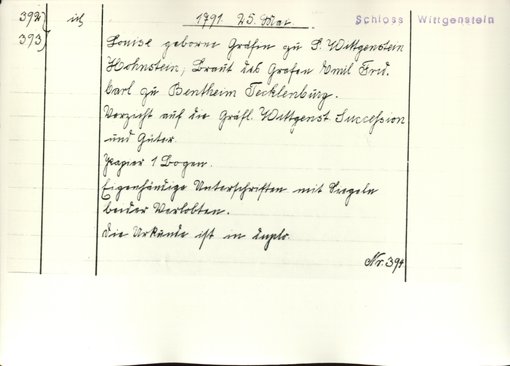 392) ich 1791 25. Mai Schloss Wittgenstein
393)
Louise geborne Gräfen zu S. Wittgenstein
Hohnstein, Braut des Grafen Emil Frid.
Carl zu Bentheim Tecklenburg.
Verzicht auf die Gräfl. Wittgenst. Succession
und Güter.
Papier 1 Bogen.
Eigenhändige Unterschriften mit Siegeln
beider Verlobten.
Die Urkunde ist in duplo.
Nr. 394